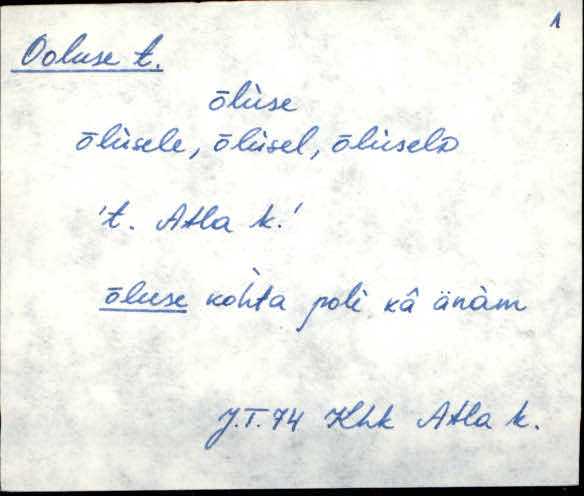 1
Ooluse t.
ōlùse
ōlùsele, ōlùsel, ōlùselD
't. Atla k.'
ōluse kòhta polè kâ änàm
J.T. 74 Khk Atla k.